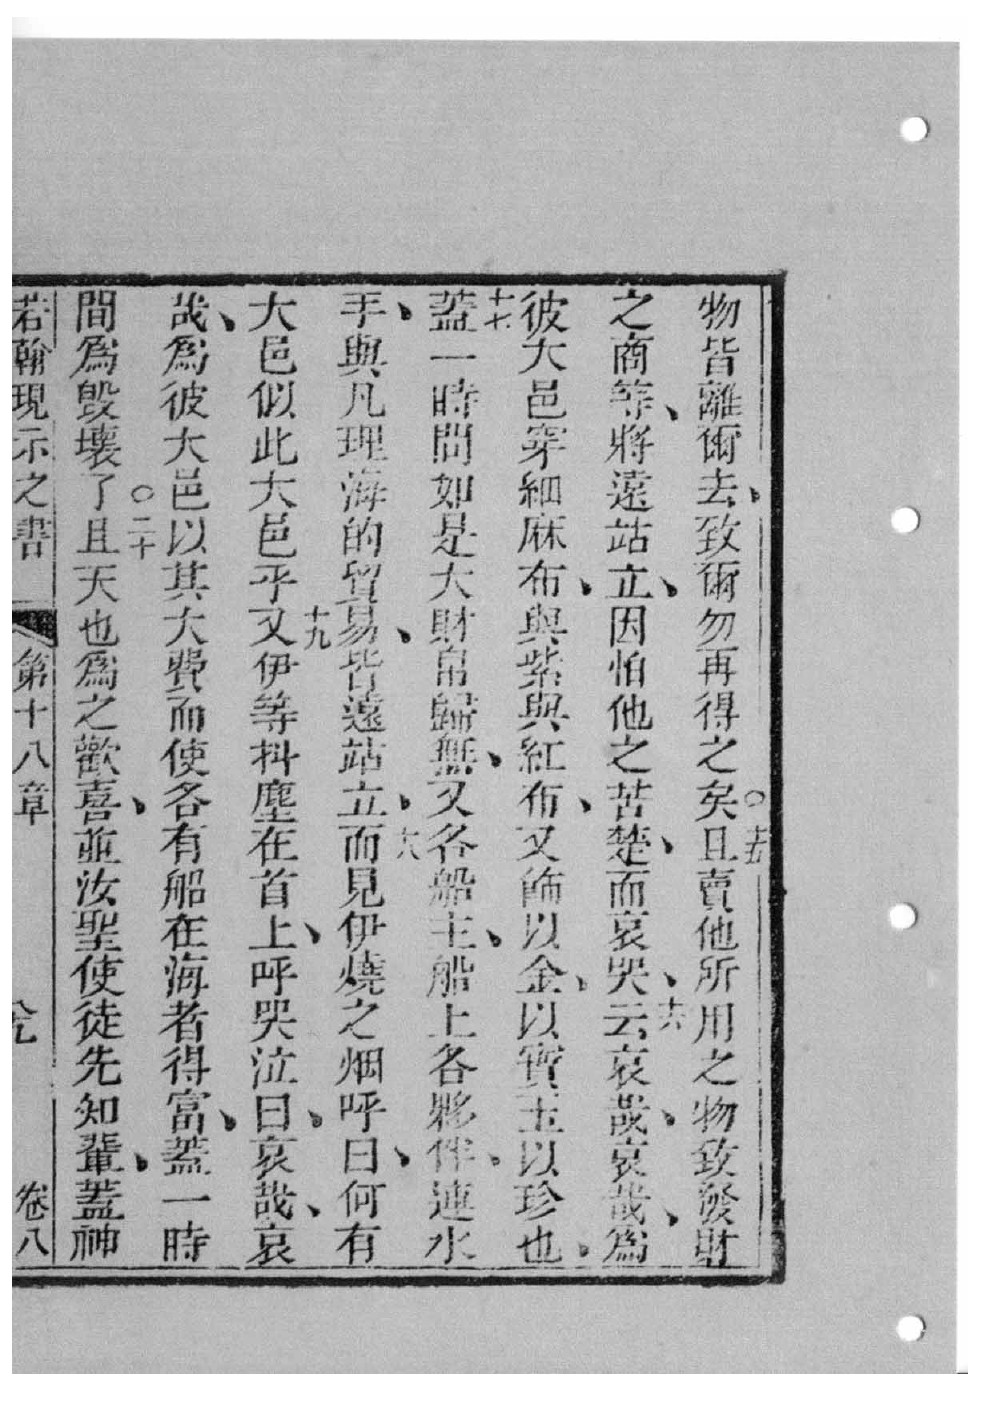 物皆離爾去、致爾勿再得之矣○十五且賣他所用之物致發財
之商等、將遠站立、因怕他之苦楚、而哀哭、十六云哀哉、哀哉、爲
彼大邑穿細麻布、與紫與紅布、又飾以金、以寶玉以珍也、
十七蓋一時間如是大財帛歸無、又各船主、船上各夥伴、連水
手、與凡理海的貿易、皆遠站立、十八而見伊燒之烟呼曰、何有
大邑似此大邑乎十九又伊等抖塵在首上、呼哭泣曰、哀哉、哀
哉、爲彼大邑以其大費而使各有船在海者得富、蓋一時
間爲毀壞了○二十且天也爲之歡喜、並汝聖使徒先知輩、蓋神
若翰現示之書 第十八章 卷八